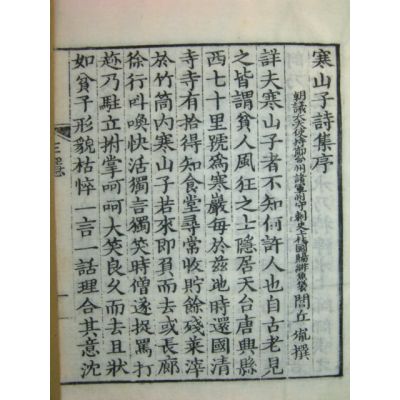 寒山子詩集序
朝議大夫使持節台州諸軍事守刺史上柱國賜緋魚袋 閭丘胤撰
詳夫寒山子者不知何許人也自古老見
之皆謂貧人風狂之士隱居天台唐興縣
西七十里號為寒巖每於茲地時還國清
寺寺有拾得知食堂尋常收貯餘殘菜滓
於竹筒內寒山子若來即負而去或長廊
徐行叫喚快活獨言獨笑時僧遂捉罵打
趂乃駐立拊掌呵呵大笑良久而去且狀
如貧子形貌枯悴一言一話理合其意沈